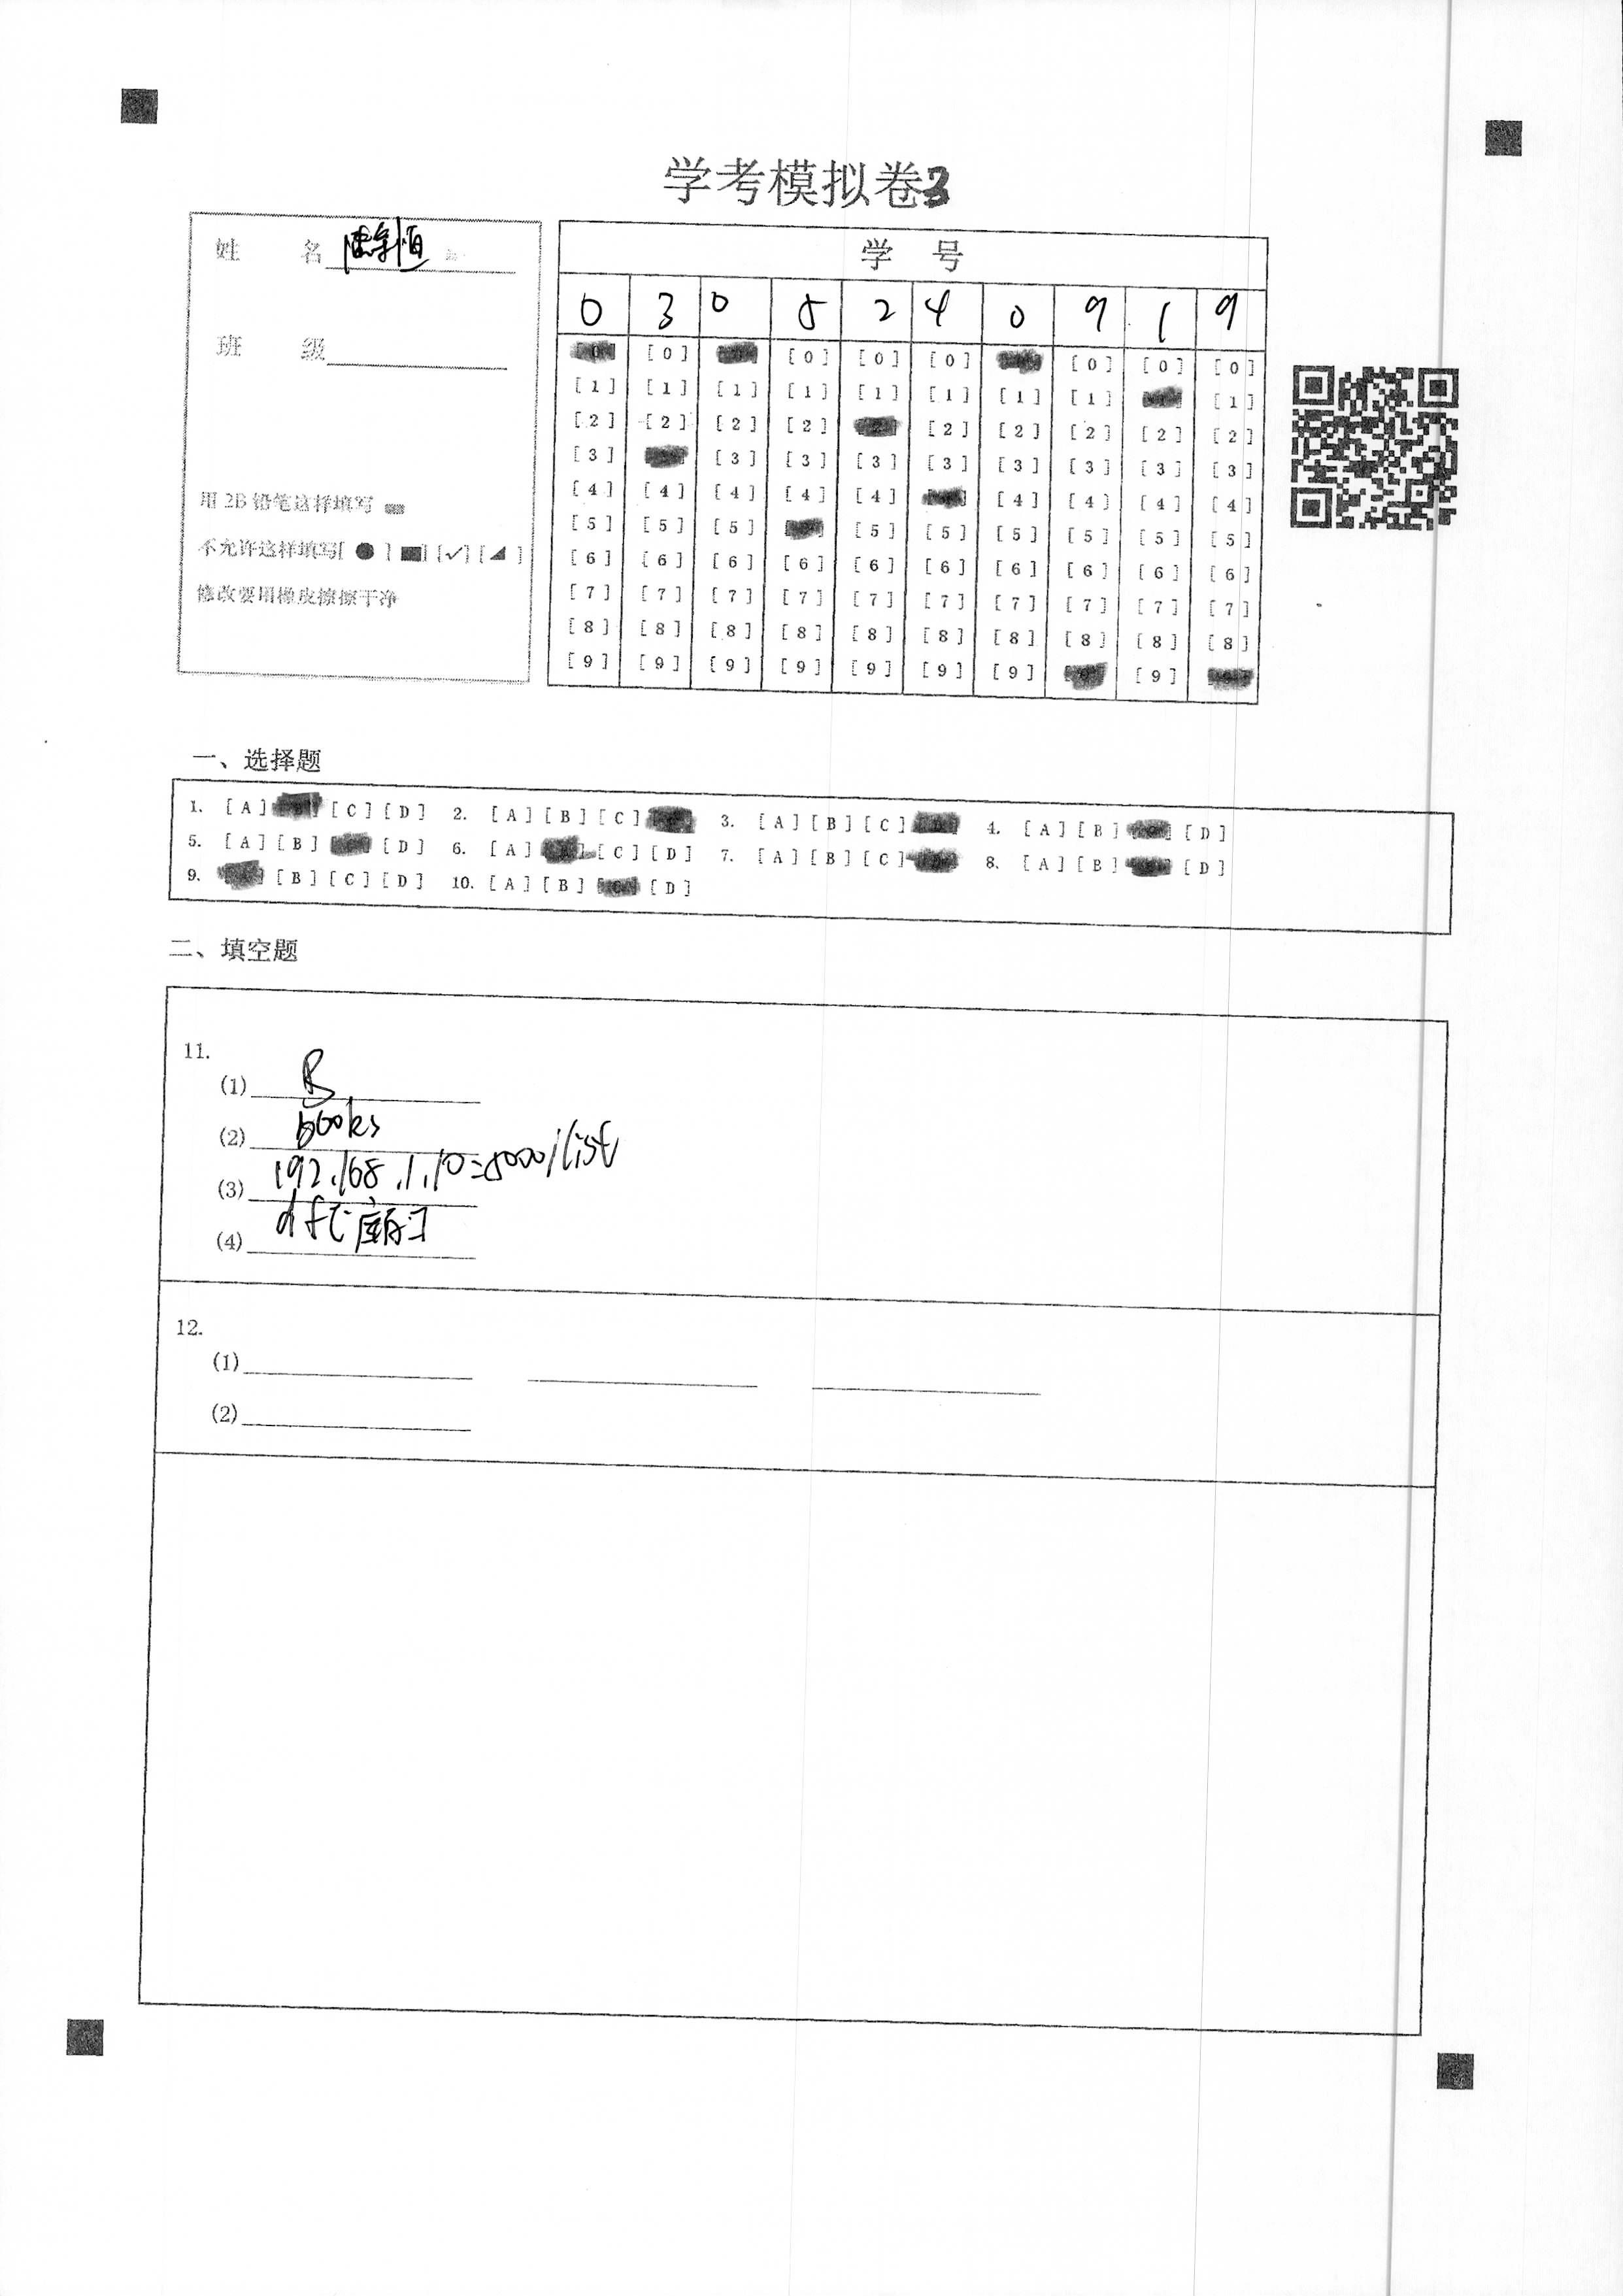 学考模拟卷3
姓 名
班 级
用2B铅笔这样填写
不允许这样填写[ ● ] [■] [✓] [◢ ]
修改要用橡皮擦擦干净
学 号
0 3 0 5 2 4 0 9 1 9
[0] [0] [0] [0] [0] [0] [0]
[1] [1] [1] [1] [1] [1] [1] [1] [1]
[2] [2] [2] [2] [2] [2] [2] [2] [2]
[3] [3] [3] [3] [3] [3] [3] [3] [3]
[4] [4] [4] [4] [4] [4] [4] [4] [4]
[5] [5] [5] [5] [5] [5] [5] [5] [5]
[6] [6] [6] [6] [6] [6] [6] [6] [6] [6]
[7] [7] [7] [7] [7] [7] [7] [7] [7] [7]
[8] [8] [8] [8] [8] [8] [8] [8] [8] [8]
[9] [9] [9] [9] [9] [9] [9] [9]
一、选择题
1. [A] [C] [D] 2. [A] [B] [C] 3. [A] [B] [C] 4. [A] [B] [D]
5. [A] [B] [D] 6. [A] [C] [D] 7. [A] [B] [C] 8. [A] [B] [D]
9. [B] [C] [D] 10. [A] [B] [D]
二、填空题
11.
(1) B
(2) books
(3) 192.168.1.10:5000/list
(4)
12.
(1)
(2)